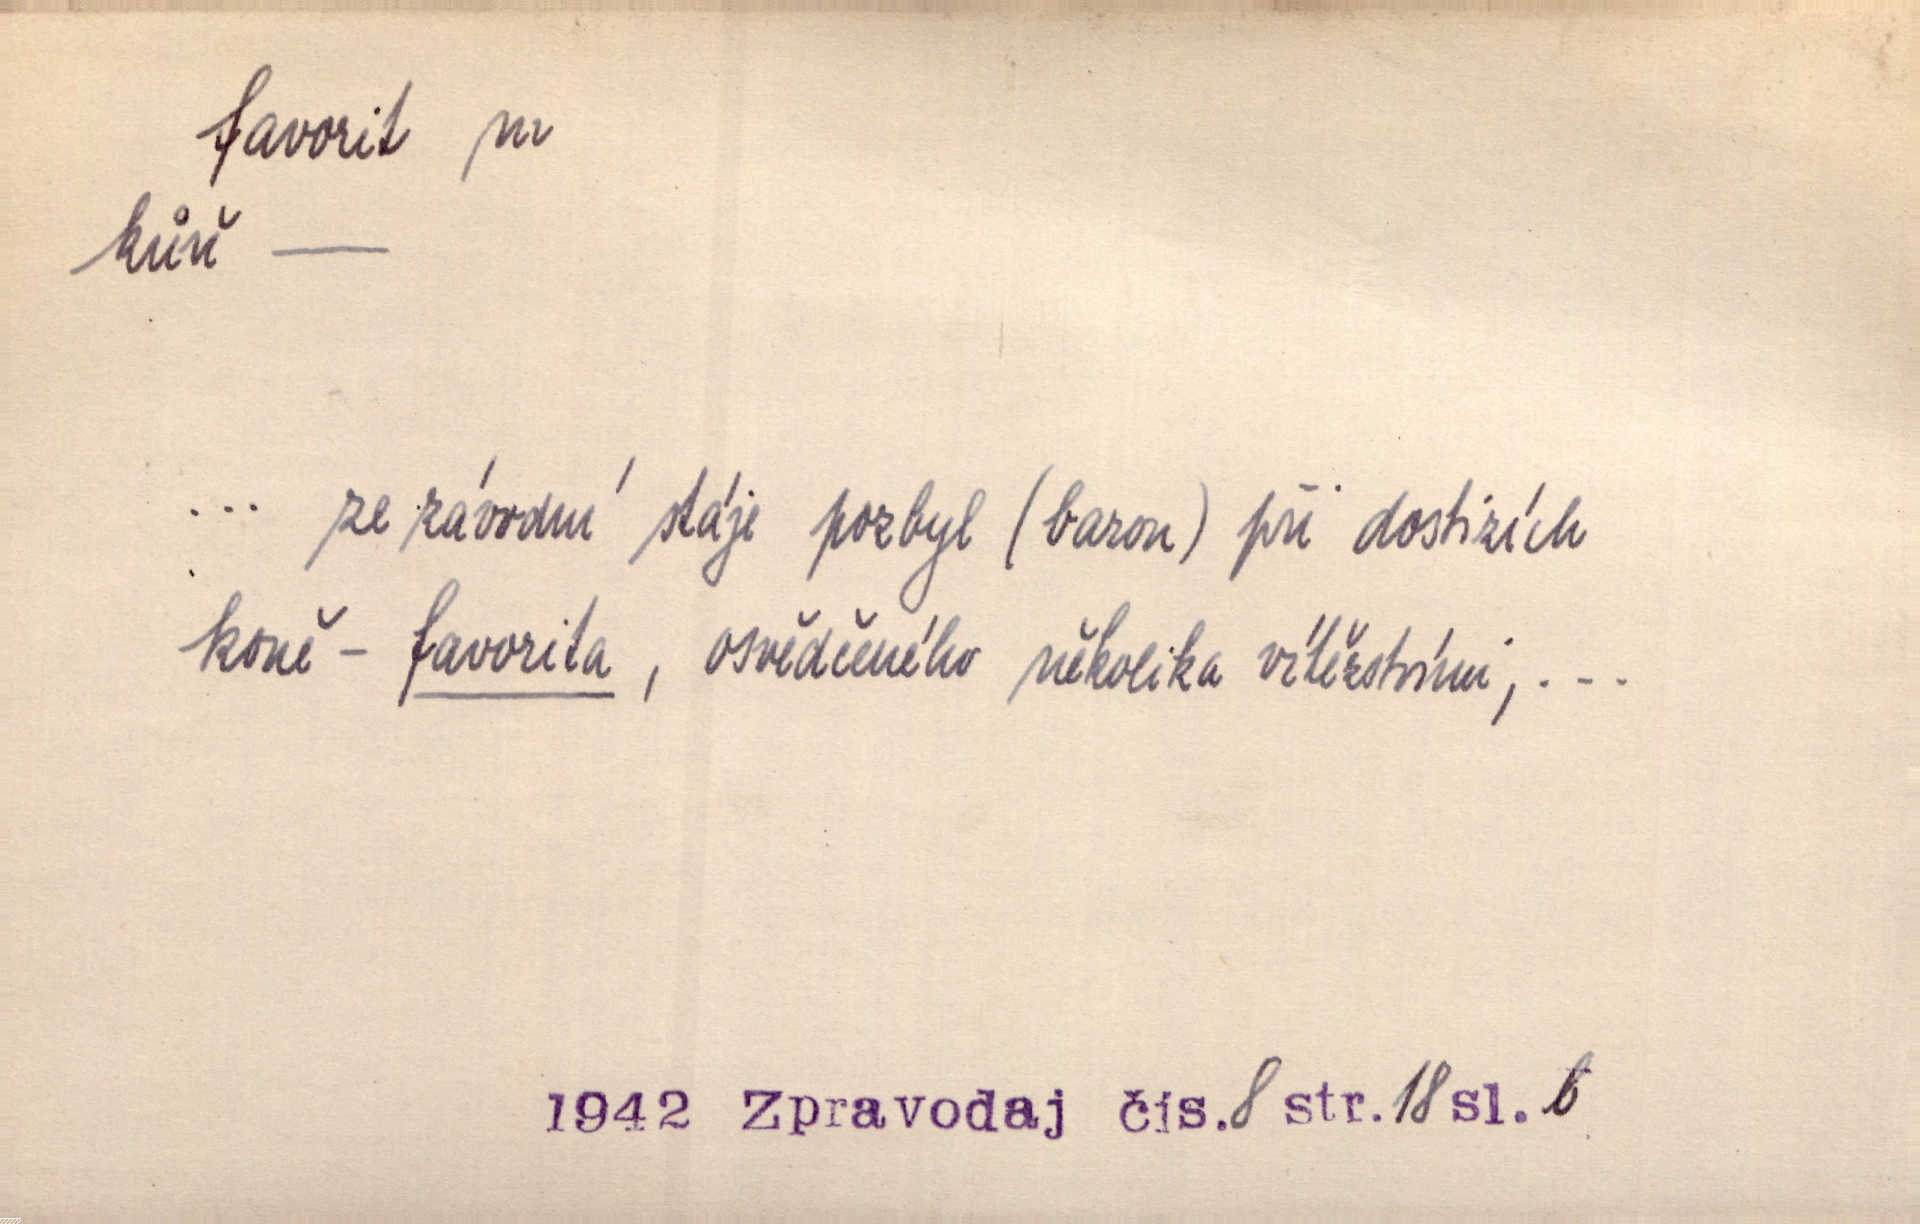 favorit m
kůň —
... ze závodní stáje pozbyl (baron) při dostizích
koně - favorita, osvědčeného několika vítězstvími, ...
1942 Zpravodaj čís. 8 str. 18 sl. b